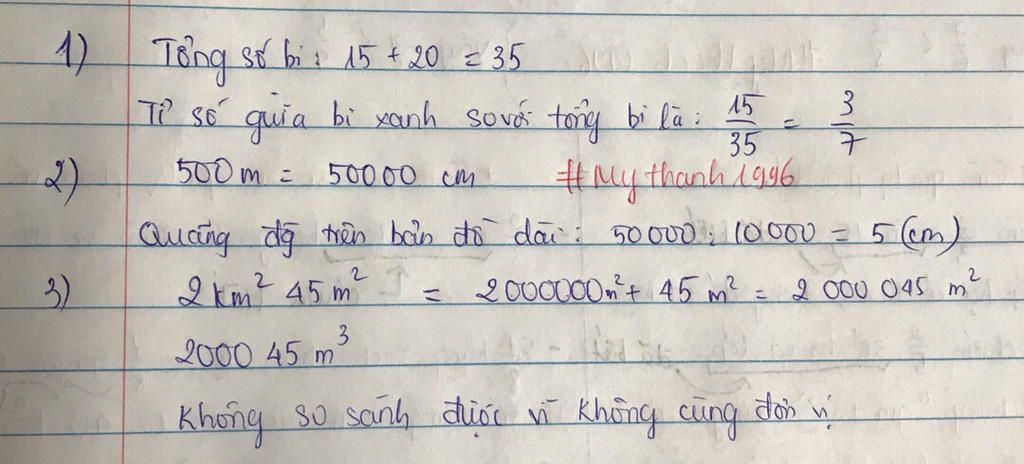 1) Tổng số bi: 15 + 20 = 35
Tỉ số giữa bi xanh so với tổng bi là: 15/35 = 3/7
2) 500 m = 50000 cm #Mythanh1996
Quãng đg trên bản đồ dài: 50000 : 10000 = 5 (cm)
3) 2 km² 45 m² = 2000000m² + 45 m² = 2 000 045 m²
2000 45 m³
Không so sánh được vì không cùng đơn vị